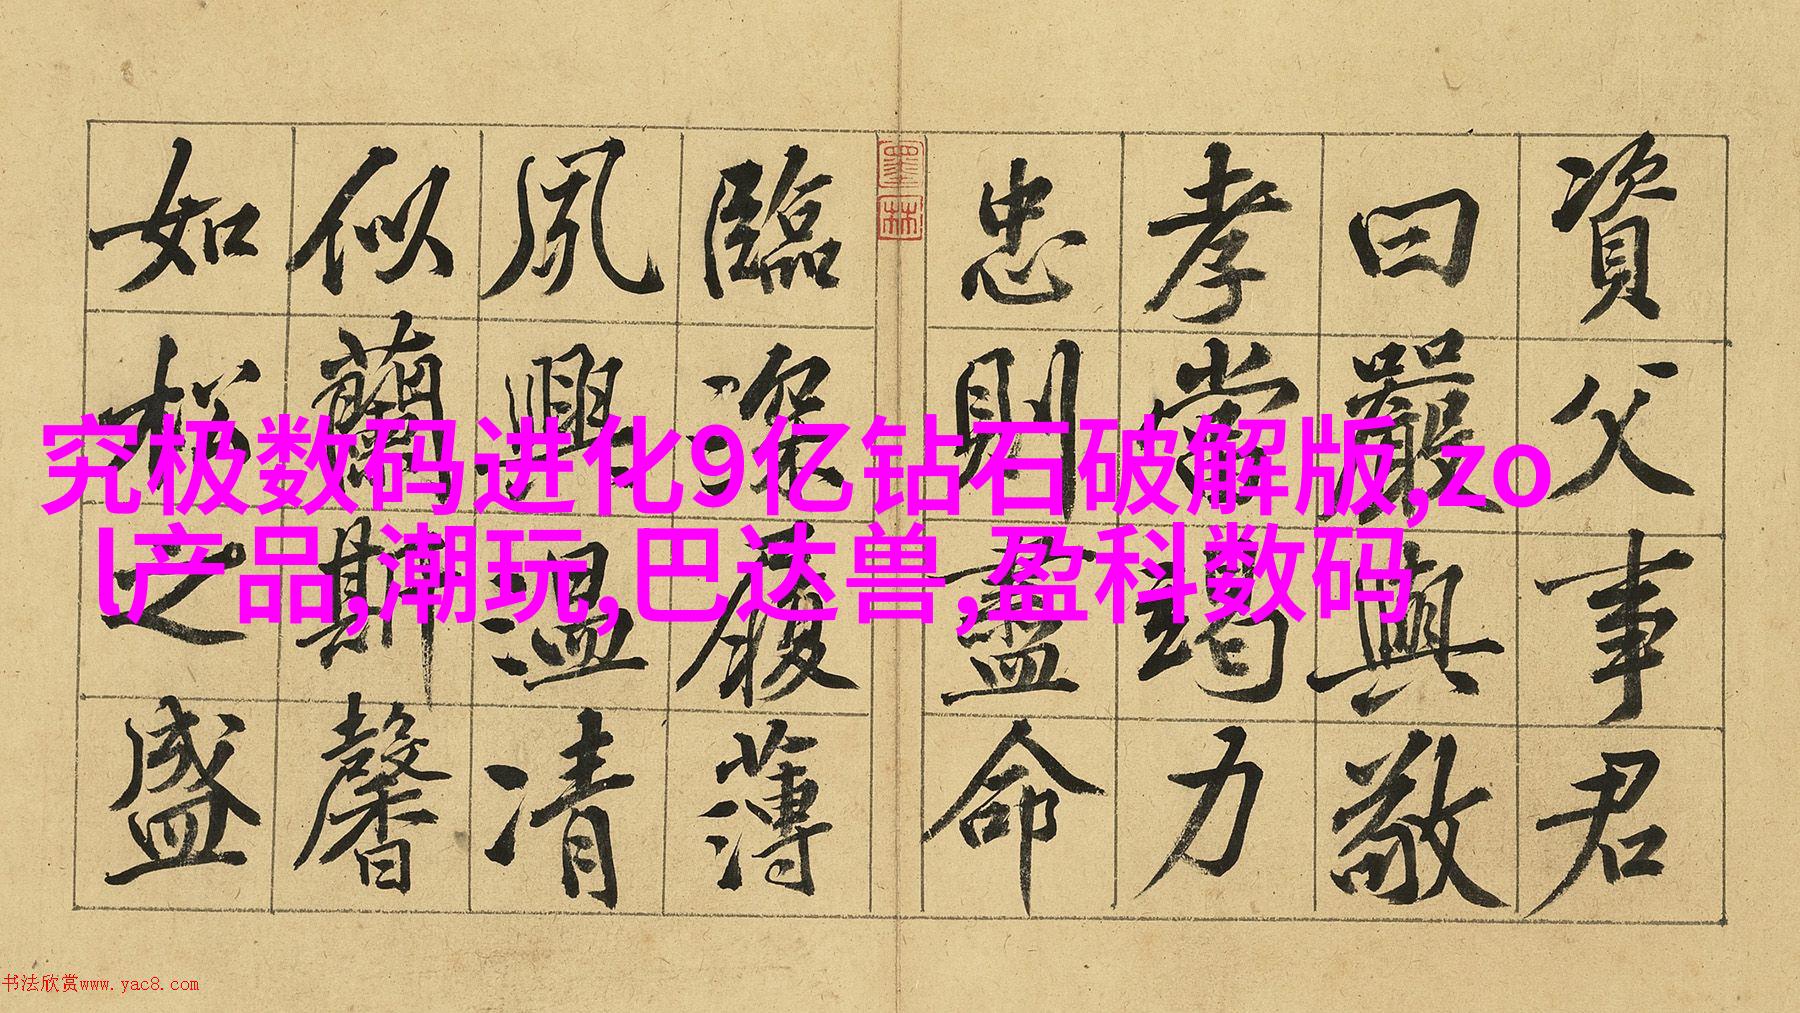 資父事君
曰嚴與敬
孝當竭力
忠則盡命
墨林
臨深履薄
夙興温凊
似蘭斯馨
如松之盛
究极数码进化9亿钻石破解版,zo
l产品,潮玩,巴达兽,盈科数码
书法欣赏www.yac8.com